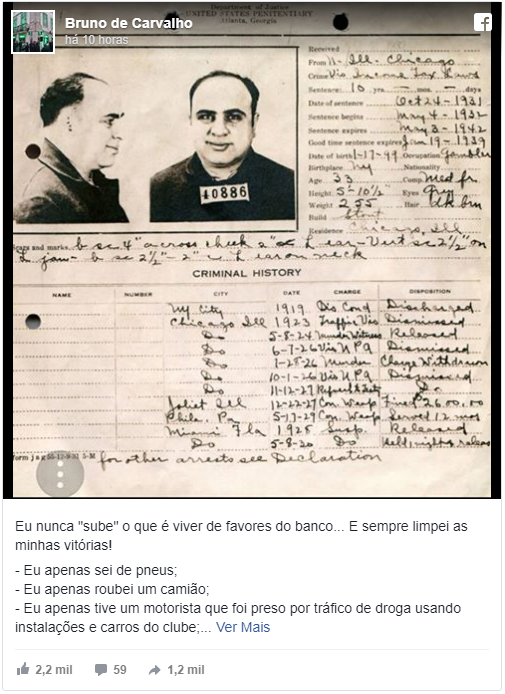 Bruno de Carvalho
há 10 horas
Department of Justice
UNITED STATES PENITENTIARY
Atlanta, Georgia
40886
Received
From Ill. Chicago
Crime Vio Income Tax Laws
Sentence: 10 yrs. mos. days
Date of sentence Oct 24-1931
Sentence begins May 4-1932
Sentence expires May 3-1942
Good time sentence expires Jan 19-1939
Date of birth 1-17-99 Occupation Gambler
Birthplace NY Nationality
Age 33 Comp. Med fr
Height 5-10½" Eyes Gry
Weight 255 Hair dk brn
Build Stout
Residence Chicago, Ill
Scars and marks. b sc 4" across cheek 2" L ear-Vert sc 2½" on
L jaw- b sc 2½"-2" L ear on neck
CRIMINAL HISTORY
NAME NUMBER CITY DATE CHARGE DISPOSITION
NY City 1919 Dis Cond Discharged
Chicago Ill 1923 Traffic Vio Dismissed
Do 5-8-24 Murder Witness Released
Do 6-7-26 Vio NPA Dismissed
Do 7-28-26 Murder Charge Withdrawn
Do 10-1-26 Vio NPA Dismissed
Do 11-12-27 Do
Joliet Ill 12-22-27 Con Weap Fined 2600.00
Phila. Pa 5-17-29 Con Weap Served 12 mos
Miami Fla 1928 Susp. Released
Do 5-8-30 Do Held
for other arrests see Declaration
Eu nunca "sube" o que é viver de favores do banco... E sempre limpei as
minhas vitórias!
- Eu apenas sei de pneus;
- Eu apenas roubei um camião;
- Eu apenas tive um motorista que foi preso por tráfico de droga usando
instalações e carros do clube;... Ver Mais
2,2 mil 59 1,2 mil